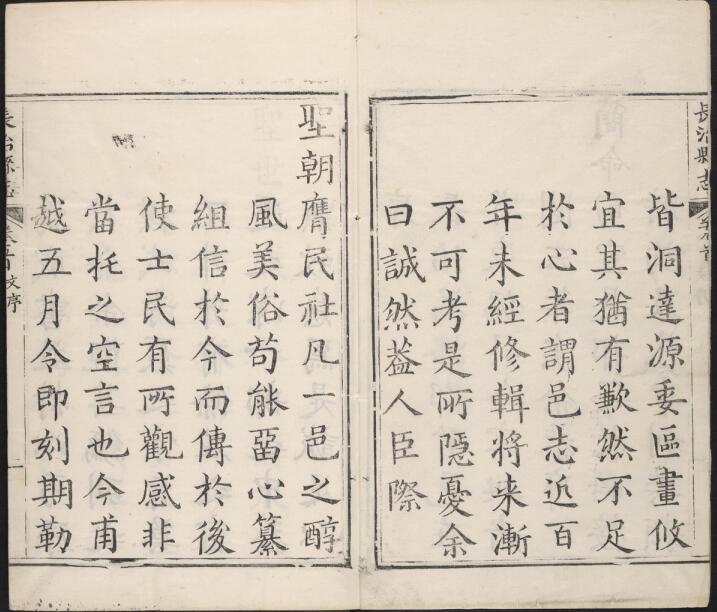 長治縣志
卷首
皆洞達源委區畫攸
宜其猶有歉然不足
於心者謂邑志近百
年未經修輯將来漸
不可考是所隱憂余
曰誠然葢人臣際
聖朝膺民社凡一邑之醇
風美俗苟能畱心纂
組信於今而傳於後
使士民有所觀感非
當托之空言也今甫
越五月令即刻期勒
長治縣志
卷首
序
一